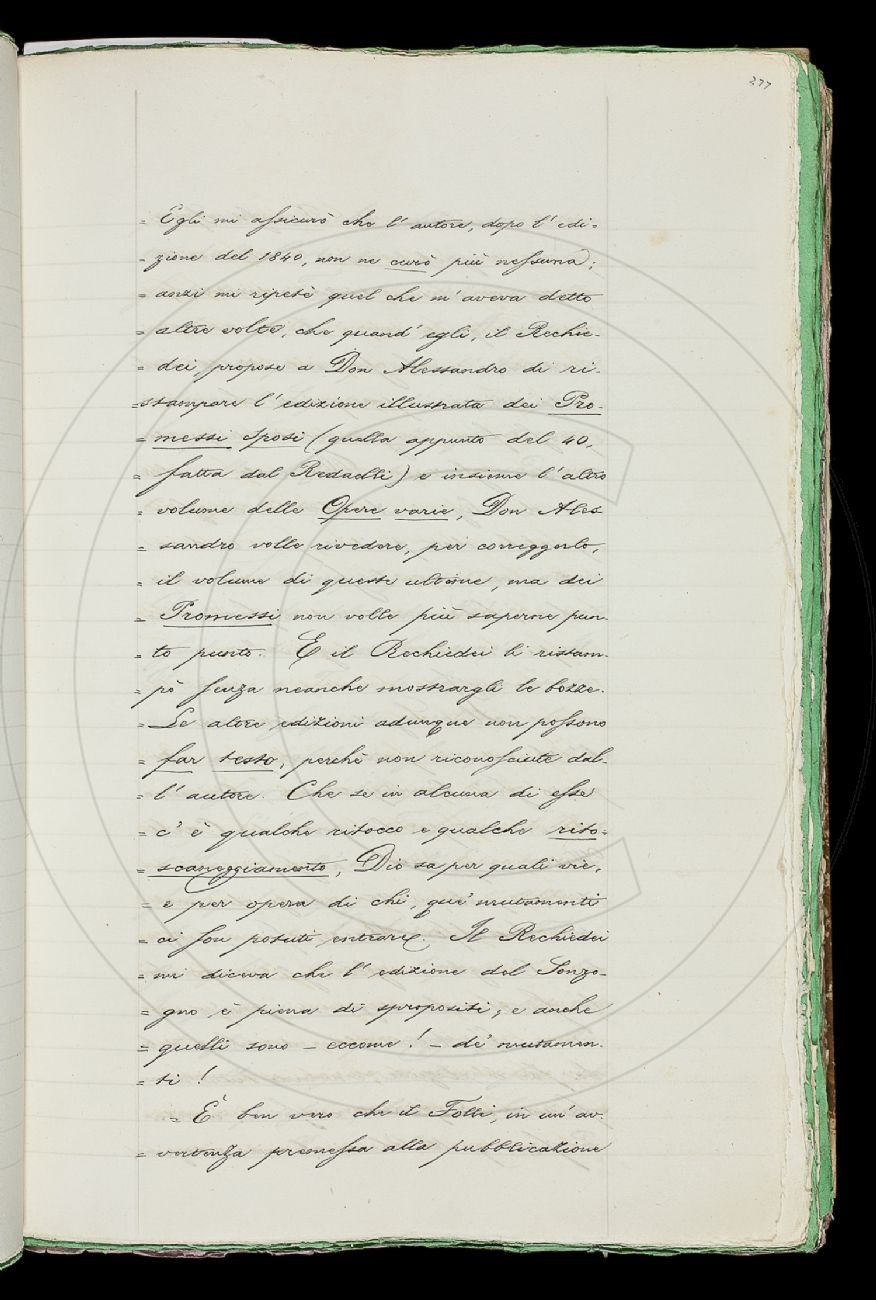 277
= Egli mi assicurò che l' autore, dopo l' edi=
= zione del 1840, non ne curò più nessuna;
= anzi mi ripetè quel che m' aveva detto
= altre volte, che quand' egli, il Rechie-
= dei, propose a Don Alessandro di ri-
= stampare l' edizione illustrata dei Pro-
= messi Sposi (quella appunto del 40,
= fatta dal Redaelli) e insieme l' altro
= volume delle Opere varie, Don Ales
= sandro volle rivedere, per correggerlo,
= il volume di queste ultime, ma dei
= Promessi non volle più saperne pun-
= to punto. E il Rechiedei li ristam-
= pò senza neanche mostrargli le bozze.
= Le altre edizioni adunque non possono
= far testo, perchè non riconosciute dal-
= l' autore. Che se in alcuna di esse
= c' è qualche ritocco e qualche rito-
= scaneggiamento, Dio sa per quali vie,
= e per opera di chi, que' mutamenti
= ci son potuti entrare. Il Rechiedei
= mi diceva che l' edizione del Sonzo-
= gno è piena di spropositi; e anche
= quelli sono - eccome! - de' mutamen-
= ti!
= È ben vero che il Folli, in un' av-
= vertenza premessa alla pubblicazione